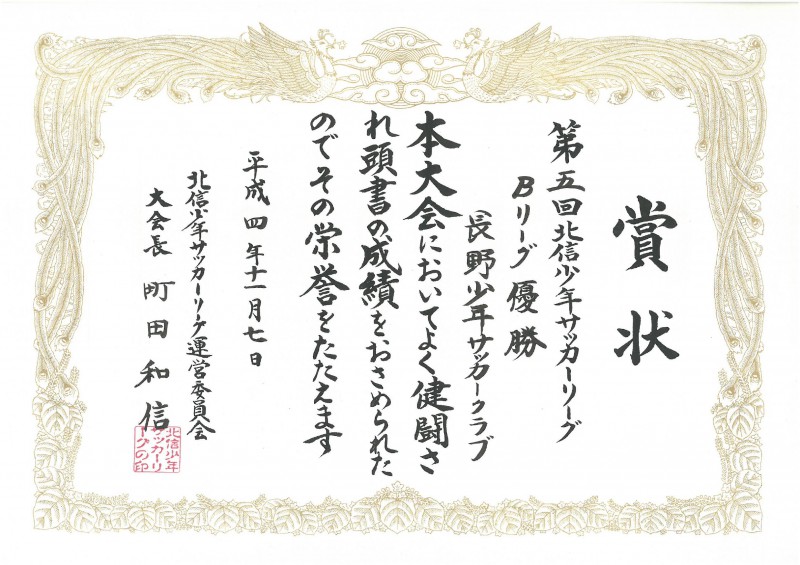 賞状
第五回北信少年サッカーリーグ
Bリーグ優勝
長野少年サッカークラブ
本大会においてよく健闘さ
れ頭書の成績をおさめられた
のでその栄誉をたたえます
平成四年十一月七日
北信少年サッカーリーグ運営委員会
大会長 町田和信
北信少年
サッカーリ
ーグの印